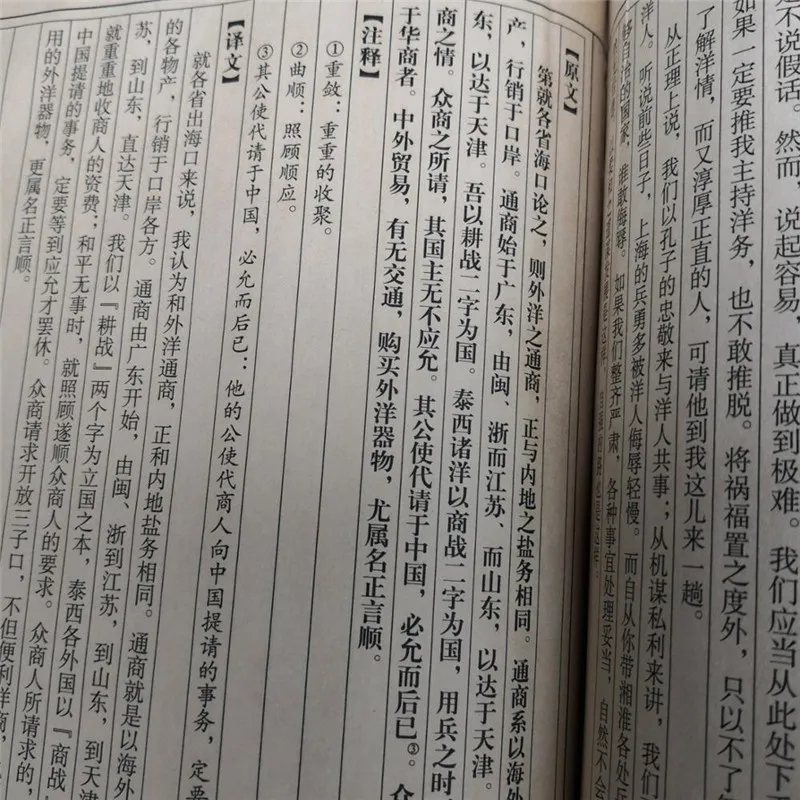 不说假话。然而，说起容易，真正做到极难。我们应当从此处下
如果一定要推我主持洋务，也不敢推脱。将祸福置之度外，只以不了
了解洋情，而又淳厚正直的人，可请他到我这儿来一趟。
从正理上说，我们以孔子的忠敬来与洋人共事；从机谋私利来讲，我们
洋人。听说前些日子，上海的兵勇多被洋人侮辱轻慢。而自从你带湘淮各处兵
自治的国家，谁敢侮辱。如果我们整齐严肃，各种事宜处理妥当，自然不会
【原文】
第就各省海口论之，则外洋之通商，正与内地之盐务相同。通商系以海外
产，行销于口岸。通商始于广东，由闽、浙而江苏、而山东，以达于天津。
东，以达于天津。吾以耕战二字为国。泰西诸洋以商战二字为国，用兵之时
商之情。众商之所请，其国主无不应允。其公使代请于中国，必允而后已③。众
于华商者。中外贸易，有无交通，购买外洋器物，尤属名正言顺。
【注释】
①重敛：重重的收聚。
②曲顺：照顾顺应。
③其公使代请于中国，必允而后已：他的公使代商人向中国提请的事务，定要
【译文】
就各省出海口来说，我认为和外洋通商，正和内地盐务相同。通商就是以海外
的各物产，行销于口岸各方。通商由广东开始，由闽、浙到江苏，到山东，到天津
苏，到山东，直达天津。我们以『耕战』两个字为立国之本，泰西各外国以『商战
就重重地收商人的资费；和平无事时，就照顾遂顺众商人的要求。众商人所请求的，
中国提请的事务，定要等到应允才罢休。众商请求开放三子口，不但便利洋商，
用的外洋器物，更属名正言顺。